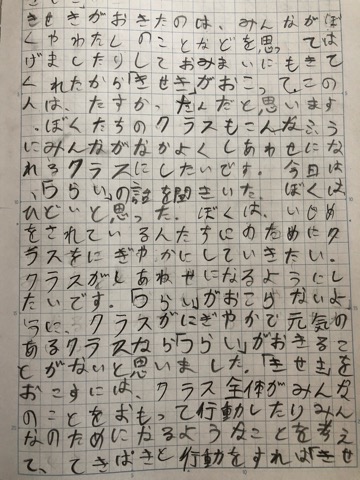 きせきがおきたのは、みんながぼ
くやわたしのことなどを思ってては
げましたりしておみまいにもきて
くれたから「きせき」がおこって、この
人は、たすかったんだと思います
。ぼくたちのクラスもこんなふう
にみんながなかよくしあわせにな
れるクラスにしたいです。今日は
、「つらい」の話を聞きいた。ぼくは
ひどいと思った。ぼくは、いじめ
をされているんたちにのためにク
ラスをにぎやかにしていきたい。
クラスがしあわせになるようにし
たいです。「つらい」がおこらないよ
うに、クラスがにぎやかで元気の
あるクラスなら「つらい」がおきるこ
とがないと思いました。「きせき」を
おこすには、クラス全体がみんな
のことをおもって行動したりみん
なのためになるようなことを考え
て、てきぱきと行動をすれば「きせ